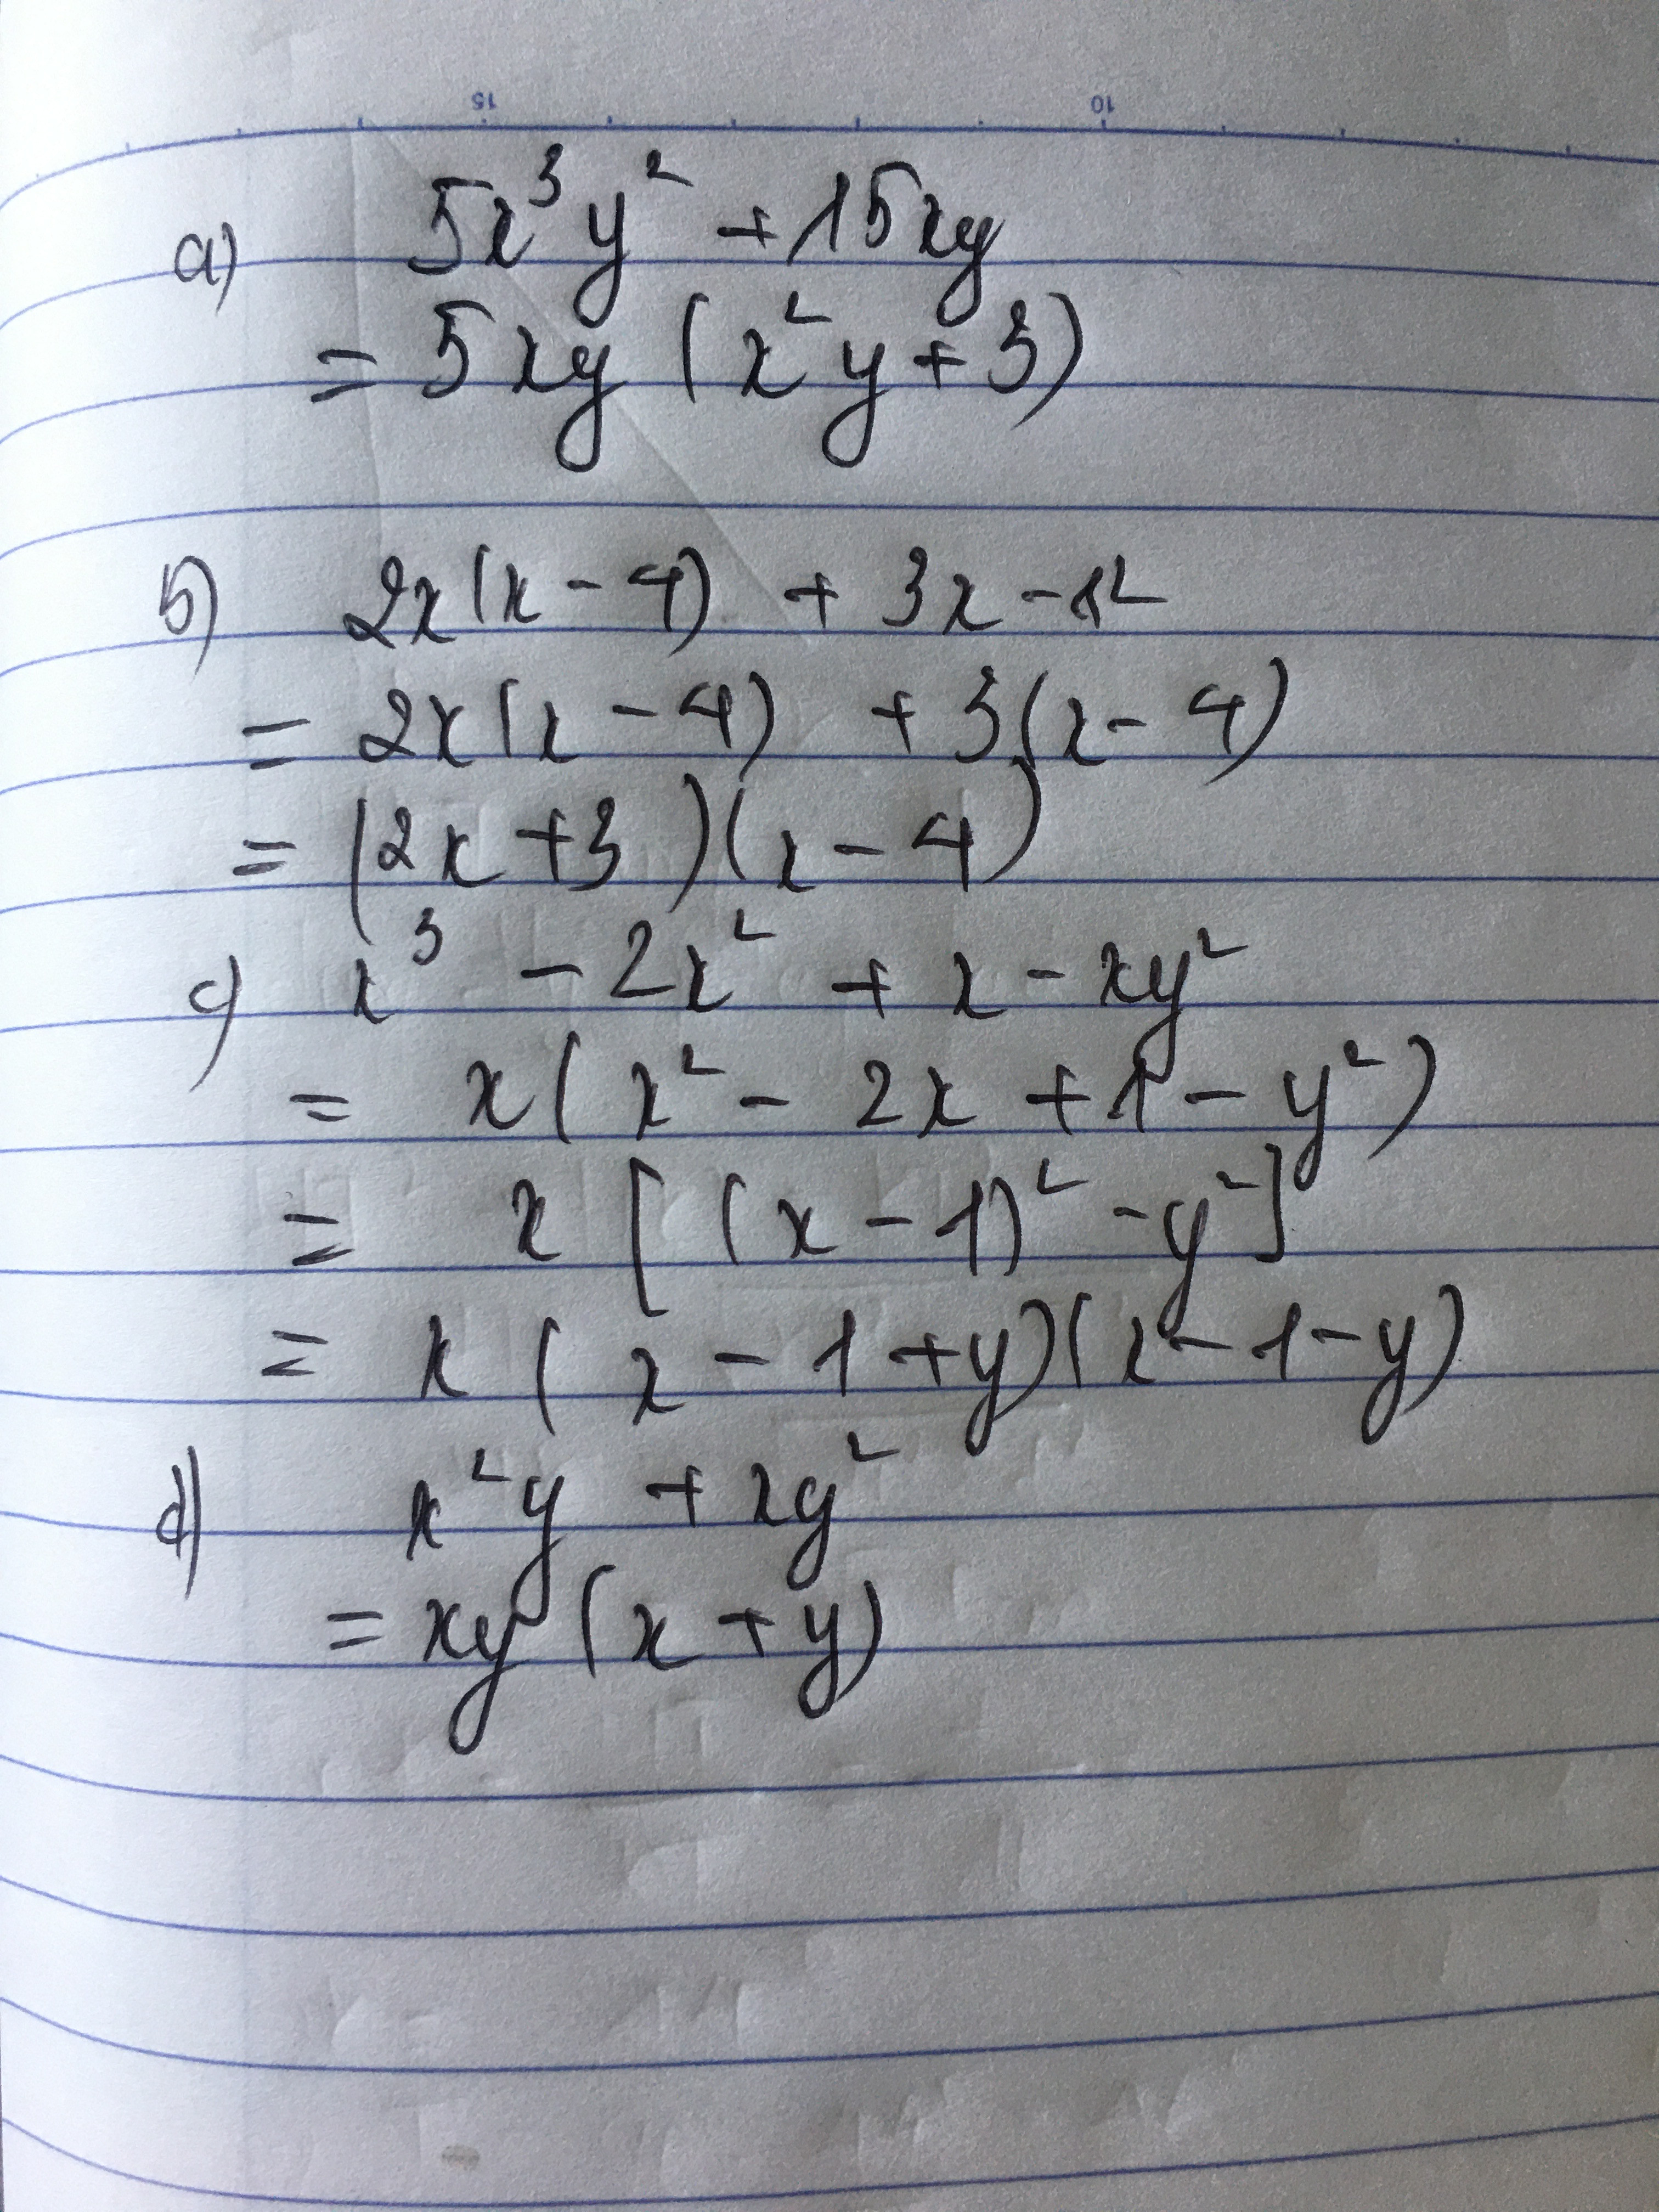 15 10
a) 5x³y² + 15xy
= 5xy (x²y + 3)
b) 2x(x - 4) + 3x - 12
= 2x(x - 4) + 3(x - 4)
= (2x + 3)(x - 4)
c) x³ - 2x² + x - xy²
= x(x² - 2x + 1 - y²)
= x[(x - 1)² - y²]
= x(x - 1 + y)(x - 1 - y)
d) x²y + xy²
= xy(x + y)